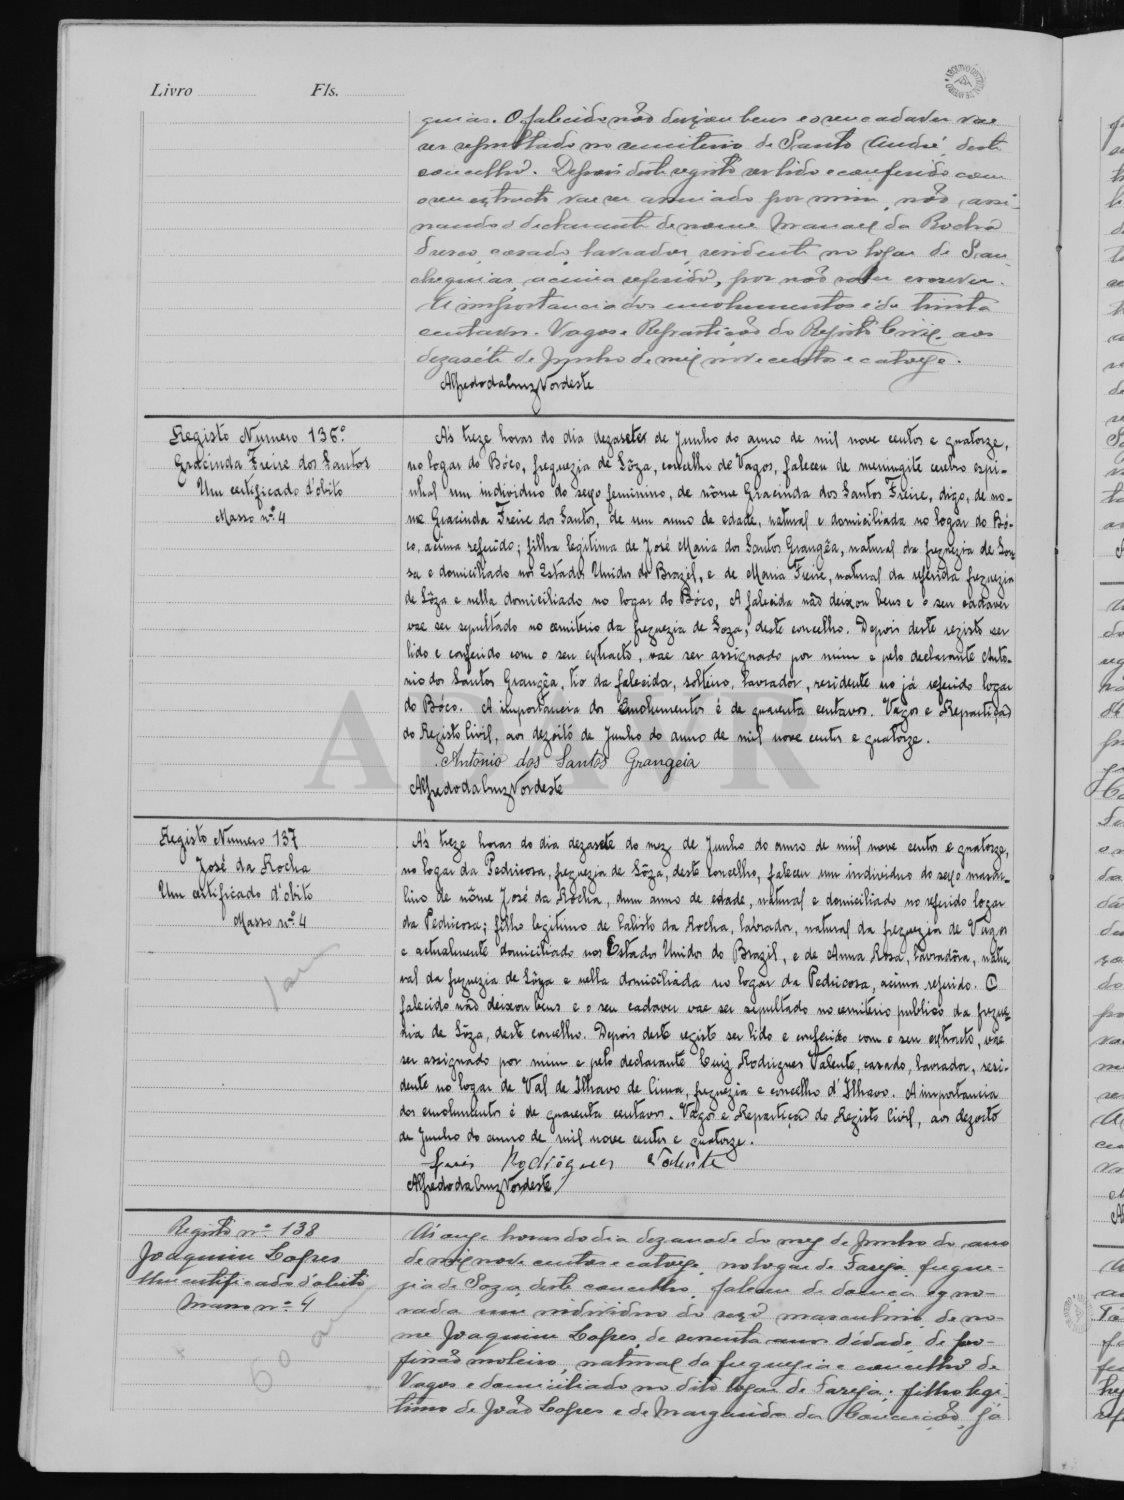 Livro Fls.
quias. O falecido não deixou bens e o seu cadaver vae
ser sepultado no cemiterio de Santo André, deste
concelho. Depois deste registo ser lido e conferido com
o seu extracto vae ser assinado por mim, não assi-
nando o declarante de nome Manoel da Rocha
Fresco, casado, lavrador, residente no logar de San-
chequias, acima referido, por não saber escrever.
A importancia dos emolumentos é de trinta
centavos. Vagos e Repartição do Registo Civil, aos
dezaséte de Junho de mil nove centos e catorze.
Alfredo da Cruz Nordeste
Registo Numero 136º
Gracinda Freire dos Santos
Um certificado d'óbito
Masso nº 4
A's treze horas do dia dezasete de Junho do anno de mil nove centos e quatorze,
no logar do Bóco, freguezia de Sôza, concelho de Vagos, faleceu de meningite cerebro espi-
nhal um individuo do sexo feminino, de nôme Gracinda dos Santos Freire, digo, de no-
me Gracinda Freire dos Santos, de um anno de edade, natural e domiciliada no logar do Bó-
co, acima referido; filha legitima de José Maria dos Santos Grangêa, natural da freguezia de Sou-
sa e domiciliado nos Estados Unidos do Brazil, e de Maria Freire, natural da referida freguezia
de Sôza e nella domiciliado no logar do Bóco, A falecida não deixou bens e o seu cadaver
vae ser sepultado no cemiterio da freguezia de Soza, deste concelho. Depois deste registo ser
lido e conferido com o seu extracto, vae ser assignado por mim e pelo declarante Anto-
nio dos Santos Grangêa, tio da falecida, solteiro, lavrador, residente no já referido logar
do Bóco. A importancia dos Emolumentos é de quarenta centavos. Vagos e Repartição
do Registo Civil, aos dezoito de Junho do anno de mil nove centos e quatorze.
Antonio dos Santos Grangeia
Alfredo da Cruz Nordeste
Registo Numero 137
José da Rocha
Um certificado d'óbito
Masso nº 4
1 ano
A's treze horas do dia dezasete do mez de Junho do anno de mil nove centos e quatorze,
no logar da Pedricosa, freguezia de Sôza, deste concelho, faleceu um individuo do sexo mascu-
lino de nôme José da Rocha, dum anno de edade, natural e domiciliado no referido logar
da Pedricosa; filho legitimo de Calisto da Rocha, lavrador, natural da freguezia de Vagos
e actualmente domiciliado nos Estados Unidos do Brazil, e de Anna Rosa, lavradôra, natu-
ral da freguezia de Sôza e nella domiciliada no logar da Pedricosa, acima referido. O
falecido não deixou bens e o seu cadaver vae ser sepultado no cemiterio publico da fregue-
zia de Sôza, deste concelho. Depois deste registo ser lido e conferido com o seu extracto, vae
ser assignado por mim e pelo declarante Luiz Rodrigues Valente, casado, lavrador, resi-
dente no logar de Val de Ilhavo de Cima, freguezia e concelho d'Ilhavo. A importancia
dos emolumentos é de quarenta centavos. Vagos e Repartição do Registo Civil, aos dezoito
de Junho do anno de mil nove centos e quatorze.
Luis Rodrigues Valente
Alfredo da Cruz Nordeste
Registo nº 138
Joaquim Lopes
Um certificado d'óbito
Masso nº 4
60 anos
A's onze horas do dia dezanove do mez de Junho do ano
de mil nove centos e catorze, no logar de Fareja, fregue-
zia de Soza, deste concelho, faleceu de doença igno-
rada um individuo do sexo masculino, de no-
me Joaquim Lopes, de sessenta anos d'edade, de pro-
fissão moleiro, natural da freguezia e concelho de
Vagos e domiciliado no dito logar de Fareja; filho legi-
timo de João Lopes e de Margarida da Conceição, já
ADAVR